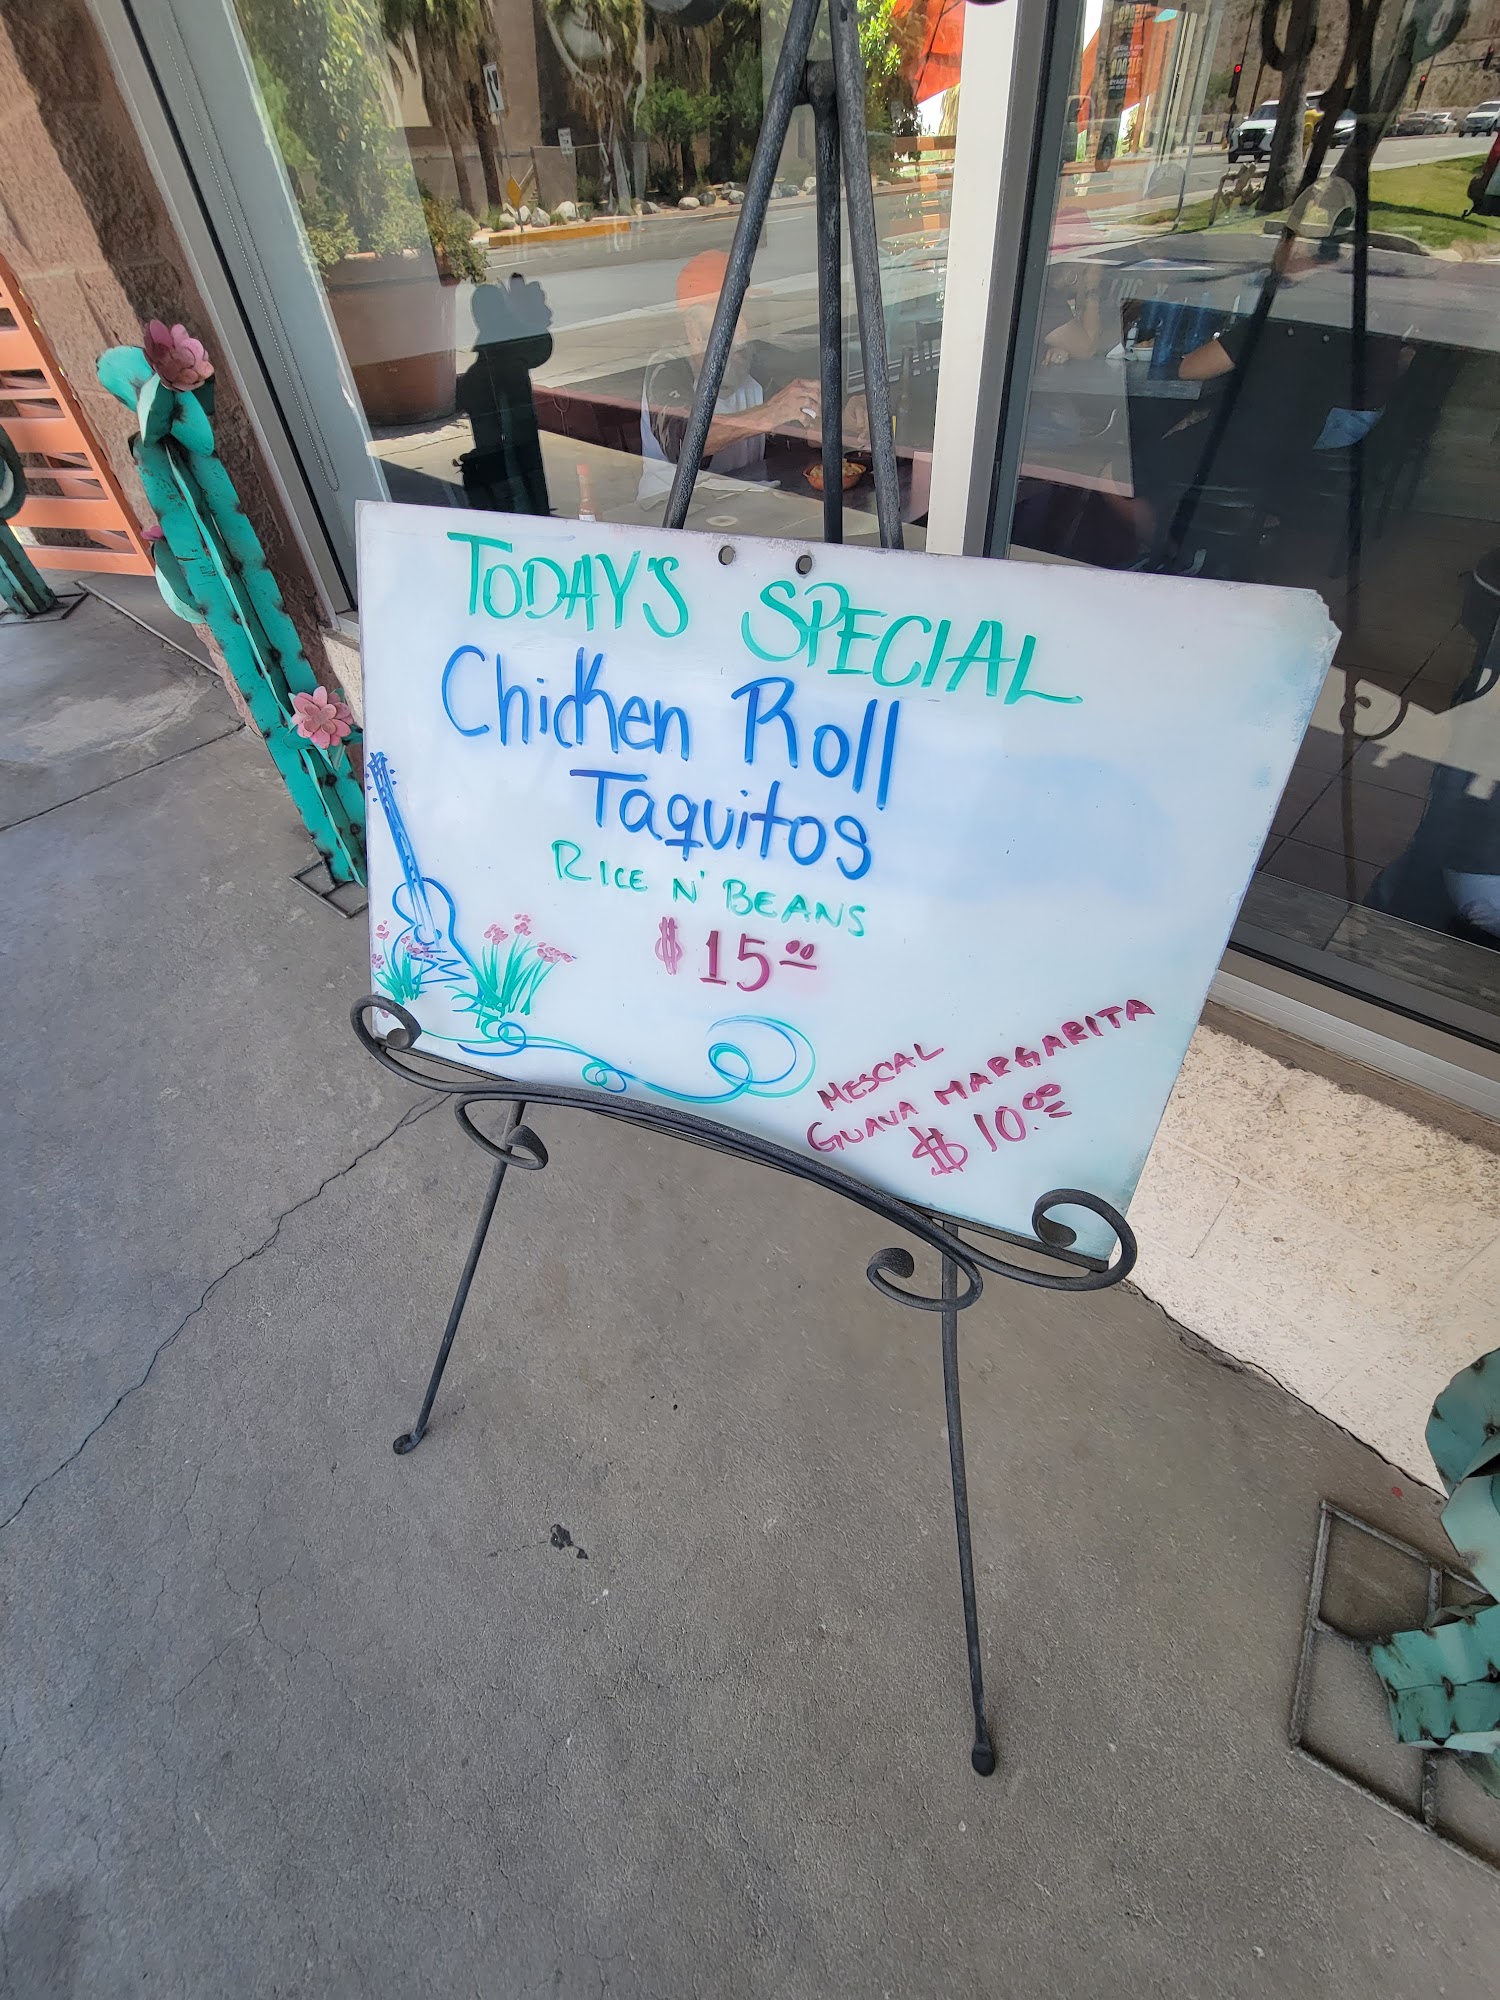 TODAY'S SPECIAL
Chicken Roll
Taquitos
RICE N' BEANS
$15.00
MESCAL
GUAVA MARGARITA
$10.00